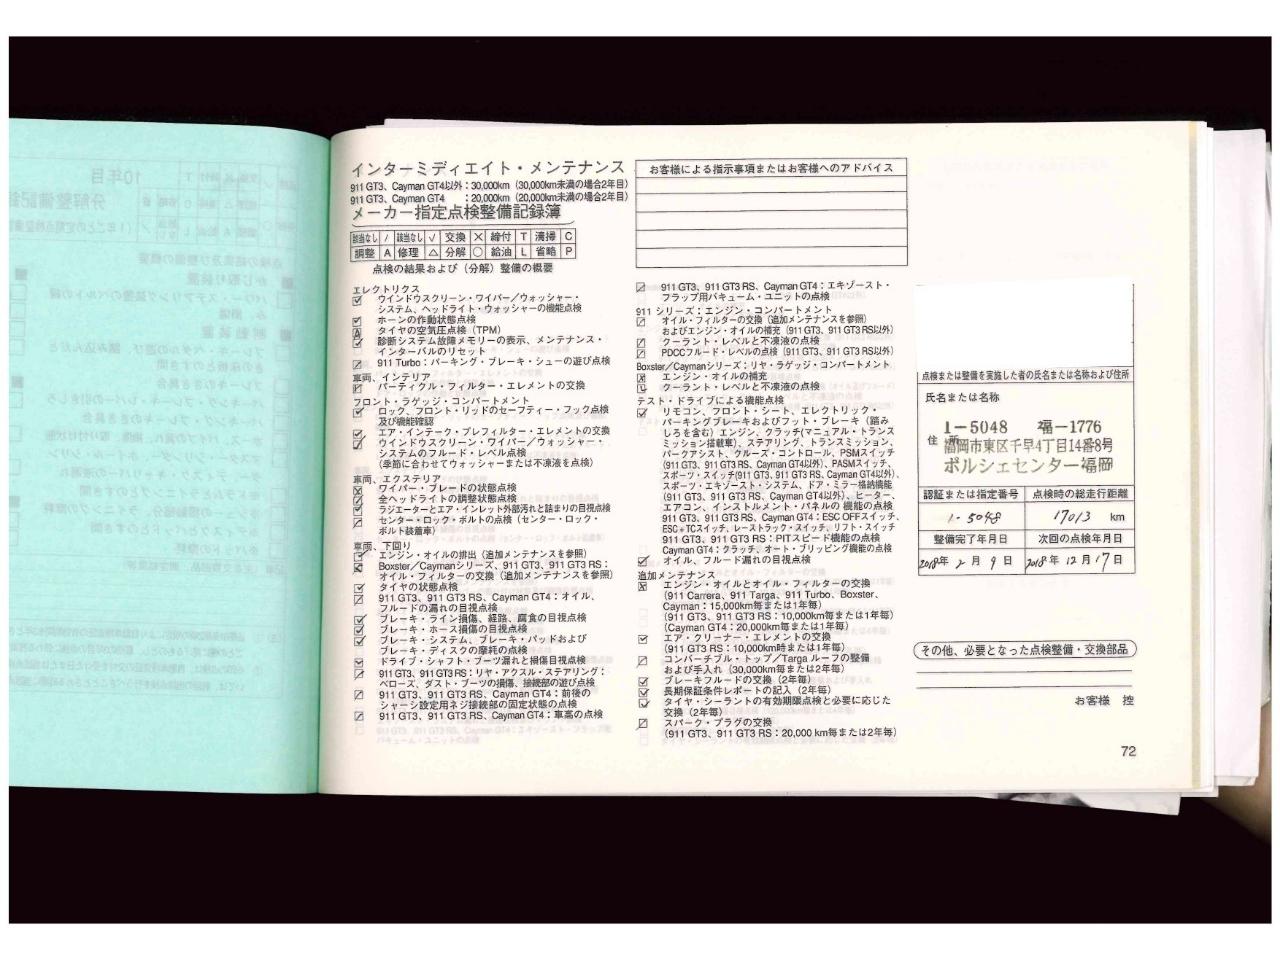 インターミディエイト・メンテナンス
911 GT3、Cayman GT4以外:30,000km(30,000km未満の場合2年目)
911 GT3、Cayman GT4 :20,000km(20,000km未満の場合2年目)
メーカー指定点検整備記録簿
該当なし / 該当なし √ 交換 × 締付 T 清掃 C
調整 A 修理 △ 分解 ○ 給油 L 省略 P
点検の結果および(分解)整備の概要
エレクトリクス
ウインドウスクリーン・ワイパー/ウォッシャー・
システム、ヘッドライト・ウォッシャーの機能点検
ホーンの作動状態点検
タイヤの空気圧点検(TPM)
診断システム故障メモリーの表示、メンテナンス・
インターバルのリセット
911 Turbo:パーキング・ブレーキ・シューの遊び点検
車両、インテリア
パーティクル・フィルター・エレメントの交換
フロント・ラゲッジ・コンパートメント
ロック、フロント・リッドのセーフティー・フック点検
及び機能確認
エア・インテーク・プレフィルター・エレメントの交換
ウインドウスクリーン・ワイパー/ウォッシャー・
システムのフルード・レベル点検
(季節に合わせてウォッシャーまたは不凍液を点検)
車両、エクステリア
ワイパー・ブレードの状態点検
全ヘッドライトの調整状態点検
ラジエーターとエア・インレット外部汚れと詰まりの目視点検
センター・ロック・ボルトの点検(センター・ロック・
ボルト装着車)
車両、下回り
エンジン・オイルの排出(追加メンテナンスを参照)
Boxster/Caymanシリーズ、911 GT3、911 GT3 RS:
オイル・フィルターの交換(追加メンテナンスを参照)
タイヤの状態点検
911 GT3、911 GT3 RS、Cayman GT4:オイル、
フルードの漏れの目視点検
ブレーキ・ライン損傷、経路、腐食の目視点検
ブレーキ・ホース損傷の目視点検
ブレーキ・システム、ブレーキ・パッドおよび
ブレーキ・ディスクの摩耗の点検
ドライブ・シャフト・ブーツ漏れと損傷目視点検
911 GT3、911 GT3 RS:リヤ・アクスル・ステアリング:
ベローズ、ダスト・ブーツの損傷、接続部の遊び点検
911 GT3、911 GT3 RS、Cayman GT4:前後の
シャーシ設定用ネジ接続部の固定状態の点検
911 GT3、911 GT3 RS、Cayman GT4:車高の点検
お客様による指示事項またはお客様へのアドバイス
911 GT3、911 GT3 RS、Cayman GT4:エキゾースト・
フラップ用バキューム・ユニットの点検
911 シリーズ:エンジン・コンパートメント
オイル・フィルターの交換(追加メンテナンスを参照)
およびエンジン・オイルの補充(911 GT3、911 GT3 RS以外)
クーラント・レベルと不凍液の点検
PDCCフルード・レベルの点検(911 GT3、911 GT3 RS以外)
Boxster/Caymanシリーズ:リヤ・ラゲッジ・コンパートメント
エンジン・オイルの補充
クーラント・レベルと不凍液の点検
テスト・ドライブによる機能点検
リモコン、フロント・シート、エレクトリック・
パーキングブレーキおよびフット・ブレーキ(踏み
しろを含む)エンジン、クラッチ(マニュアル・トランス
ミッション搭載車)、ステアリング、トランスミッション、
パークアシスト、クルーズ・コントロール、PSMスイッチ
(911 GT3、911 GT3 RS、Cayman GT4以外)、PASMスイッチ、
スポーツ・スイッチ(911 GT3、911 GT3 RS、Cayman GT4以外)、
スポーツ・エキゾースト・システム、ドア・ミラー格納機能
(911 GT3、911 GT3 RS、Cayman GT4以外)、ヒーター、
エアコン、インストルメント・パネルの機能の点検
911 GT3、911 GT3 RS、Cayman GT4:ESC OFFスイッチ、
ESC+TCスイッチ、レーストラック・スイッチ、リフト・スイッチ
911 GT3、911 GT3 RS:PITスピード機能の点検
Cayman GT4:クラッチ、オート・ブリッピング機能の点検
オイル、フルード漏れの目視点検
追加メンテナンス
エンジン・オイルとオイル・フィルターの交換
(911 Carrera、911 Targa、911 Turbo、Boxster、
Cayman:15,000km毎または1年毎)
(911 GT3、911 GT3 RS:10,000km毎または1年毎)
(Cayman GT4:20,000km毎または1年毎)
エア・クリーナー・エレメントの交換
(911 GT3 RS:10,000km時または1年毎)
コンバーチブル・トップ/Targa ルーフの整備
および手入れ(30,000km毎または2年毎)
ブレーキフルードの交換(2年毎)
長期保証条件レポートの記入(2年毎)
タイヤ・シーラントの有効期限点検と必要に応じた
交換(2年毎)
スパーク・プラグの交換
(911 GT3、911 GT3 RS:20,000 km毎または2年毎)
点検または整備を実施した者の氏名または名称および住所
氏名または名称
1-5048 福-1776
住所
福岡市東区千早4丁目14番8号
ポルシェセンター福岡
認証または指定番号 点検時の総走行距離
1-5048 17013 km
整備完了年月日 次回の点検年月日
2018年 2月 9日 2018年 12月 17日
その他、必要となった点検整備・交換部品
お客様 控
72